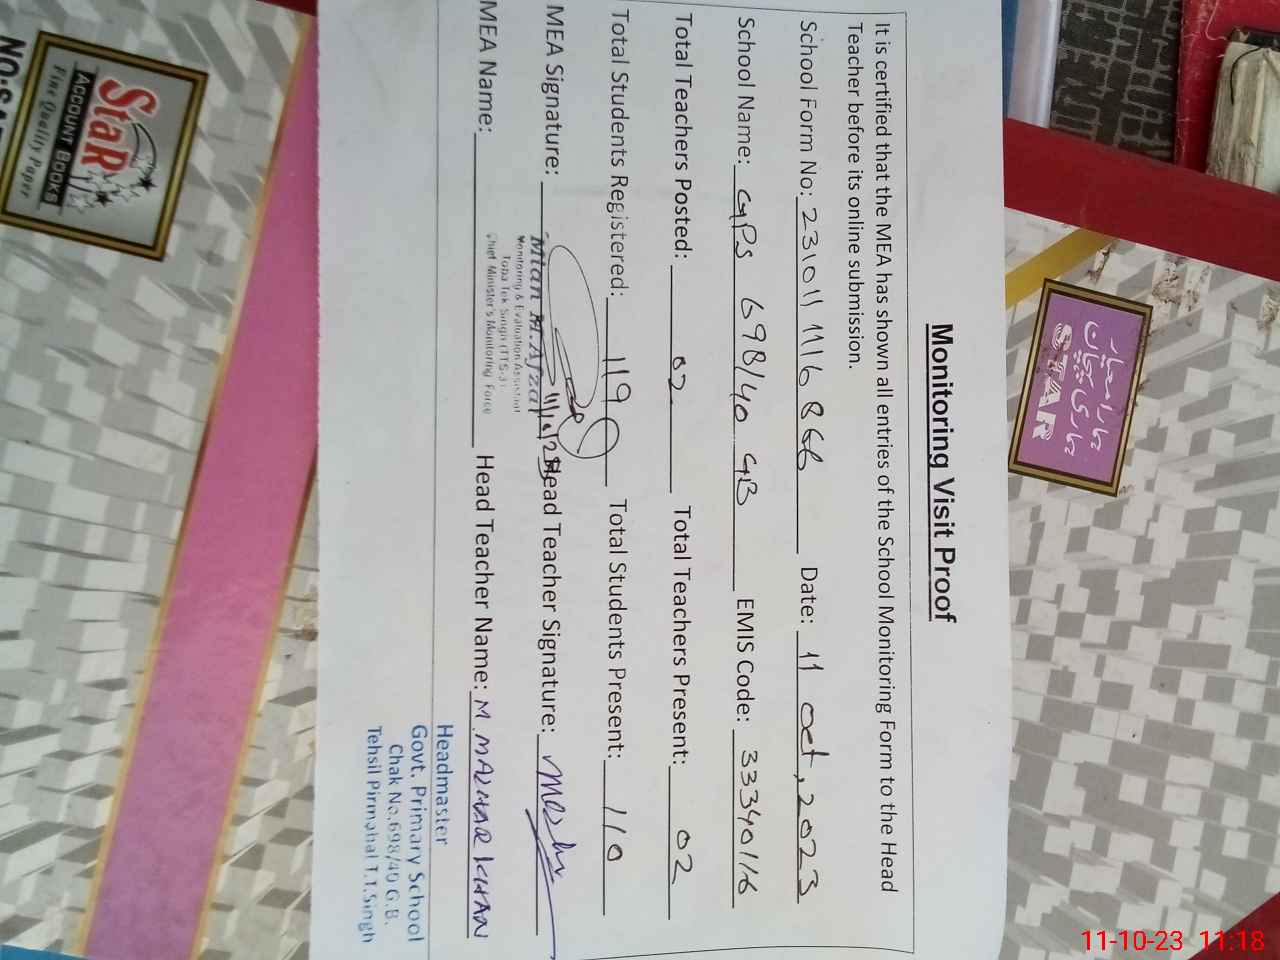 Monitoring Visit Proof
It is certified that the MEA has shown all entries of the School Monitoring Form to the Head
Teacher before its online submission.
School Form No: 231011 1116 866 Date: 11 Oct, 2023
School Name: GPS 698/40 GB EMIS Code: 33340116
Total Teachers Posted: 02 Total Teachers Present: 02
Total Students Registered: 119 Total Students Present: 110
MEA Signature: 11/10/23 Head Teacher Signature:
Mian M. Afzal
Monitoring & Evaluation Assistant
Toba Tek Singh (TTS-3)
Chief Minister's Monitoring Force
MEA Name: Head Teacher Name: M. MAZHAR KHAN
Headmaster
Govt. Primary School
Chak No.698/40 G.B.
Tehsil Pirmahal T.T.Singh
StaR
ACCOUNT BOOKS
Fine Quality Paper
ہمارا معیار
ہماری پہچان
STAR
11-10-23 11:18